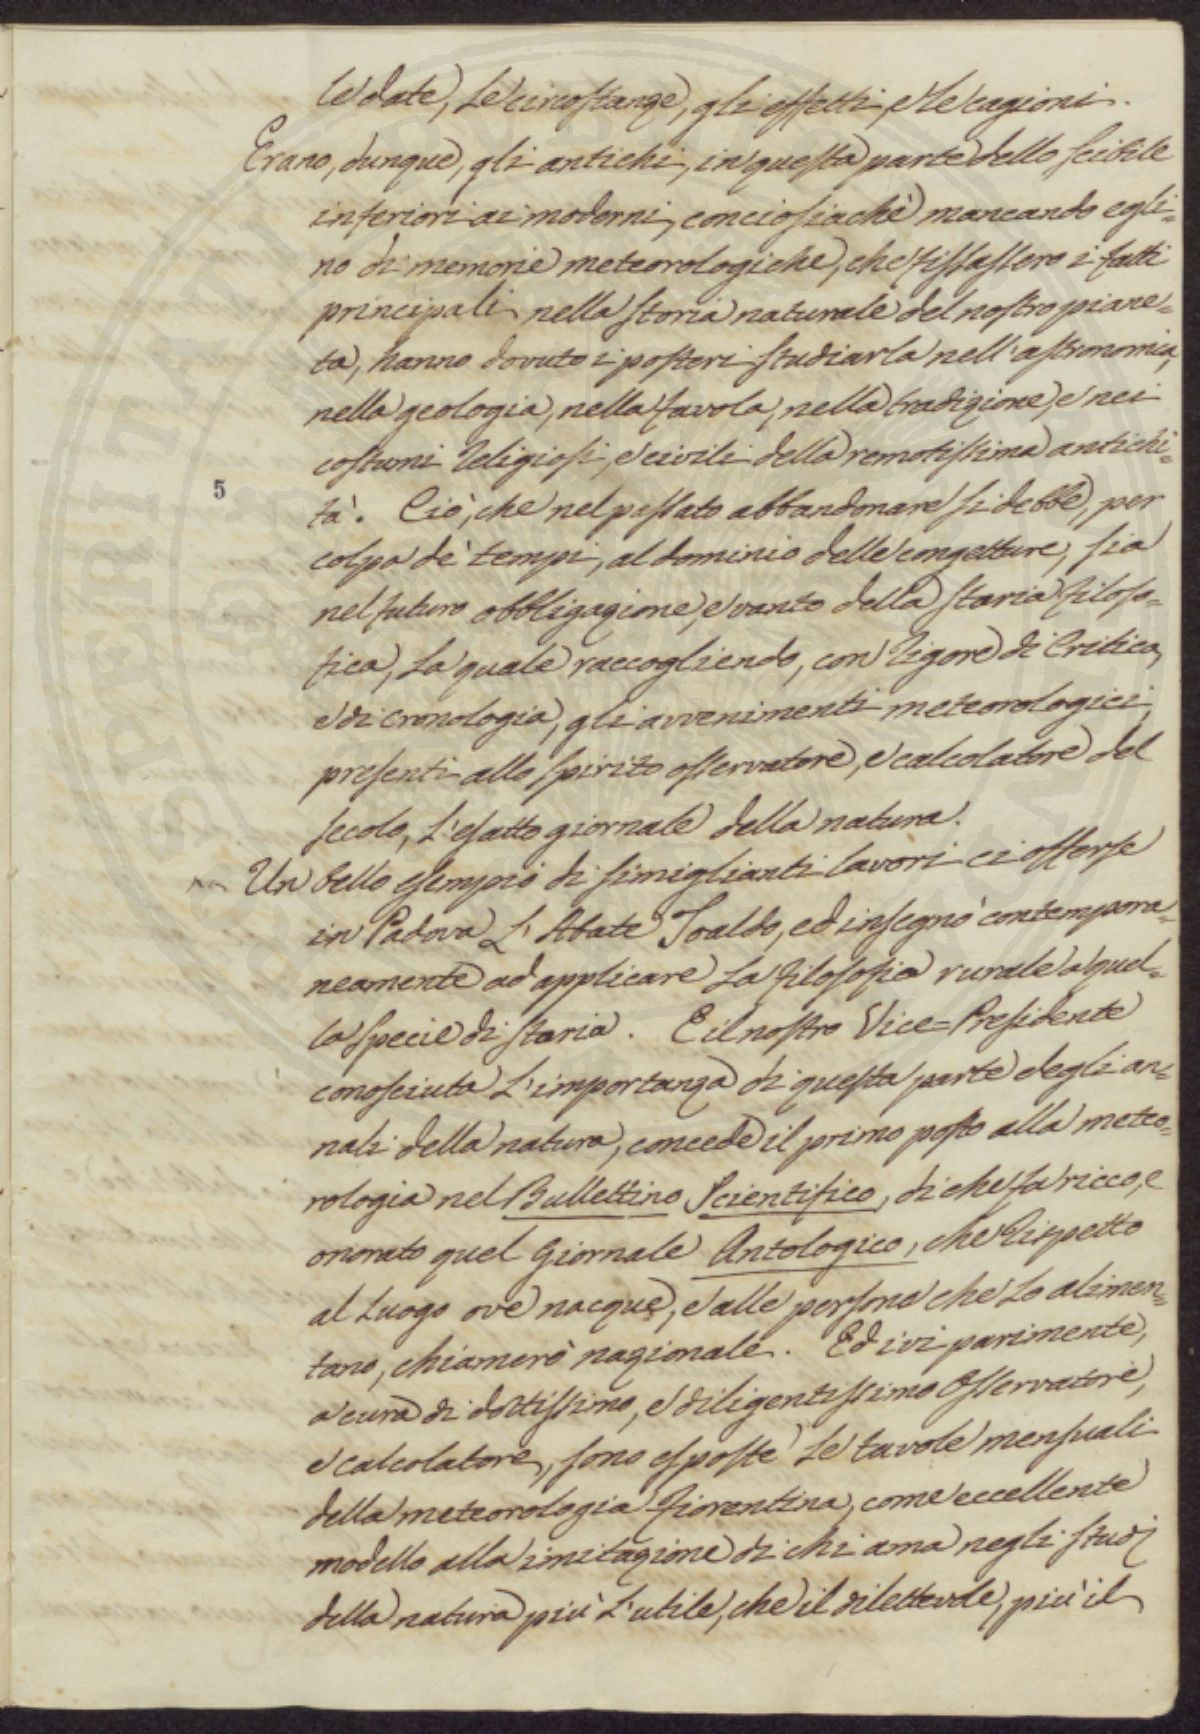 le date, le circostanze, gli effetti, e le cagioni.
Erano, dunque, gli antichi, in questa parte dello scibile
inferiori ai moderni, conciosiachè mancando egli=
no di memorie meteorologiche, che fissassero i fatti
principali nella storia naturale del nostro piane=
ta, hanno dovuto i posteri studiarla nell'astronomia,
nella geologia, nella favola, nella tradizione, e nei
costumi religiosi, e civili della remotissima antichi=
5
tà. Ciò, che nel passato abbandonare si debbe, per
colpa de' tempi, al dominio delle congetture, sia
nel futuro obbligazione, e vanto della storia filoso=
fica, la quale raccogliendo, con rigore di Critica,
e di cronologia, gli avvenimenti meteorologici,
presenti allo spirito osservatore, e calcolatore del
secolo, l'esatto giornale della natura.
Un bello esempio di simiglianti lavori ci offerse
in Padova l'Abate Toaldo, ed insegnò contempora=
neamente ad applicare la filosofia rurale a quel=
la specie di storia. E il nostro Vice=Presidente
conosciuta l'importanza di questa parte degli an=
nali della natura, concede il primo posto alla meteo=
rologia nel Bullettino Scientifico, di che fa ricco, e
onorato quel Giornale Antologico, che rispetto
al luogo ove nacque, e alle persone che lo alimen=
tano, chiamerò nazionale. Ed ivi parimente,
a cura di dottissimo, e diligentissimo Osservatore,
e calcolatore, sono esposte le tavole mensuali
della meteorologia Fiorentina, come eccellente
modello alla imitazione di chi ama negli studj
della natura più l'utile, che il dilettevole, più il
SPERITATI PUBLICAE